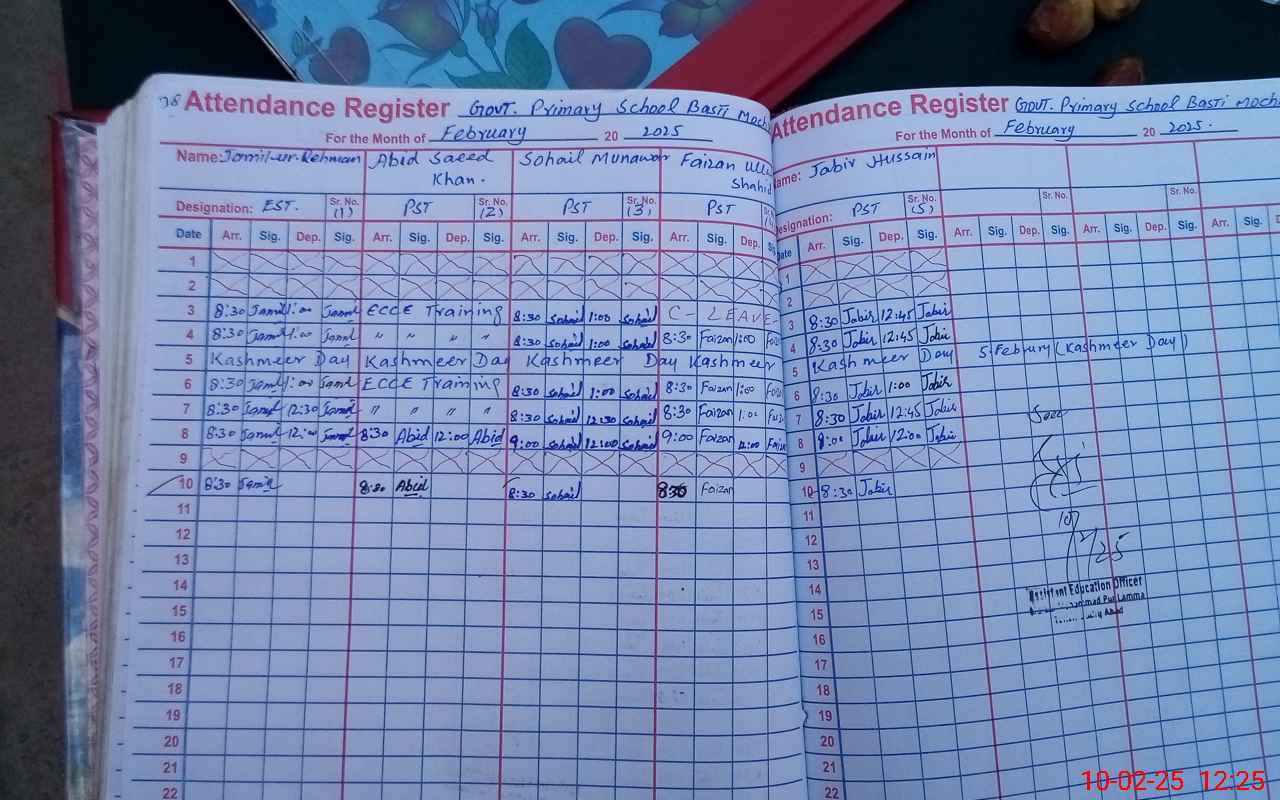 Attendance Register GOVT. Primary School Basti Moch
For the Month of February 20 2025
Name: Jamil-ur-Rehman Abid Saeed Khan. Sohail Munawar Faizan Ullah Shahid
Designation: EST. Sr. No. (1) PST Sr. No. (2) PST Sr. No. (3) PST
Date Arr. Sig. Dep. Sig. Arr. Sig. Dep. Sig. Arr. Sig. Dep. Sig. Arr. Sig. Dep. Sig.
1
2
3 8:30 Jamil 1:00 Jamil ECCE Training 8:30 Sohail 1:00 Sohail C- LEAVE
4 8:30 Jamil 1:00 Jamil " " " " 8:30 Sohail 1:00 Sohail 8:30 Faizan 1:00 Faiz
5 Kashmeer Day Kashmeer Day Kashmeer Day Kashmeer
6 8:30 Jamil 1:00 Jamil ECCE Training 8:30 Sohail 1:00 Sohail 8:30 Faizan 1:00 Faiz
7 8:30 Jamil 12:30 Jamil " " " " 8:30 Sohail 12:30 Sohail 8:30 Faizan 1:00 Faiz
8 8:30 Jamil 12:00 Jamil 8:30 Abid 12:00 Abid 9:00 Sohail 12:00 Sohail 9:00 Faizan 12:00 Faiz
9
10 8:30 Jamil 8:30 Abid 8:30 Sohail 8:30 Faizan
11
12
13
14
15
16
17
18
19
20
21
22
Attendance Register GOVT. Primary School Basti Moch
For the Month of February 20 2025.
Name: Jabir Hussain
Designation: PST Sr. No. (5) Sr. No. Sr. No.
Date Arr. Sig. Dep. Sig. Arr. Sig. Dep. Sig. Arr. Sig. Dep. Sig. Arr. Sig.
1
2
3 8:30 Jabir 12:45 Jabir
4 8:30 Jabir 12:45 Jabir
5 Kashmeer Day 5 Februry (Kashmeer Day)
6 8:30 Jabir 1:00 Jabir
7 8:30 Jabir 12:45 Jabir
8 8:00 Jabir 12:00 Jabir
9
10 8:30 Jabir
11
12
13
14
15
16
17
18
19
20
21
22
Seen
10/2/25
Assistant Education Officer
Pur Lamma
10-02-25 12:25